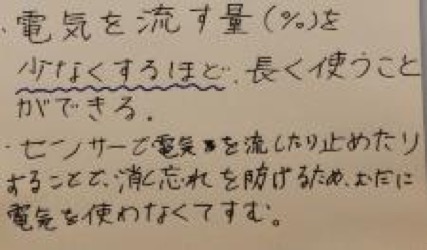 ・電気を流す量(%)を
少なくするほど、長く使うこと
ができる。
・センサーで電気を流したり止めたり
することで、消し忘れを防げるため、むだに
電気を使わなくてすむ。